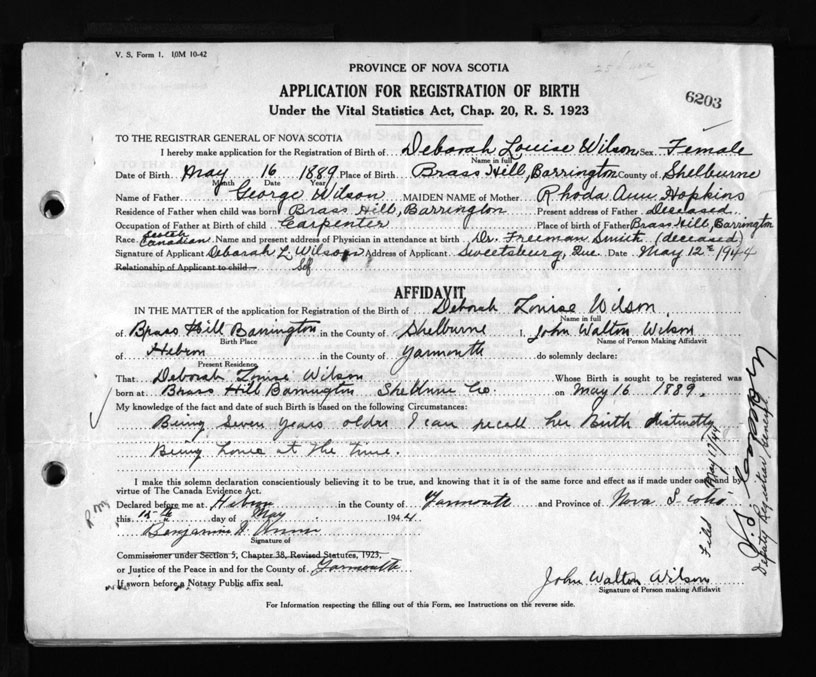 V. S. Form 1. 10M 10-42
PROVINCE OF NOVA SCOTIA
APPLICATION FOR REGISTRATION OF BIRTH
6203
Under the Vital Statistics Act, Chap. 20, R. S. 1923
TO THE REGISTRAR GENERAL OF NOVA SCOTIA
I hereby make application for the Registration of Birth of Deborah Louise Wilson Sex Female
Name in full
Date of Birth May 16 1889 Place of Birth Brass Hill, Barrington County of Shelburne
Month Date Year
Name of Father George Wilson MAIDEN NAME of Mother Rhoda Ann Hopkins
Residence of Father when child was born Brass Hill, Barrington Present address of Father Deceased
Occupation of Father at Birth of child Carpenter Place of birth of Father Brass Hill, Barrington
Race Scotch Canadian Name and present address of Physician in attendance at birth Dr. Freeman Smith (deceased)
Signature of Applicant Deborah L. Wilson Address of Applicant Sweetsburg, Que. Date May 12th 1944
Relationship of Applicant to child Self
AFFIDAVIT
IN THE MATTER of the application for Registration of the Birth of Deborah Louise Wilson
Name in full
of Brass Hill Barrington in the County of Shelburne I, John Walton Wilson
Birth Place Name of Person Making Affidavit
of Hebron in the County of Yarmouth do solemnly declare:
Present Residence
That Deborah Louise Wilson Whose Birth is sought to be registered was
born at Brass Hill Barrington Shelburne Co. on May 16 1889
My knowledge of the fact and date of such Birth is based on the following Circumstances:
Being Seven years older I can recall her Birth distinctly
Being home at the time.
I make this solemn declaration conscientiously believing it to be true, and knowing that it is of the same force and effect as if made under oath and by
virtue of The Canada Evidence Act.
Declared before me at Hebron in the County of Yarmouth and Province of Nova Scotia
this day of May 1944
Benjamin
Signature of
Commissioner under Section 5, Chapter 38, Revised Statutes, 1923,
or Justice of the Peace in and for the County of Yarmouth
If sworn before a Notary Public affix seal.
John Walton Wilson
Signature of Person making Affidavit
For Information respecting the filling out of this Form, see Instructions on the reverse side.
Filed May 17/44
Deputy Registrar General